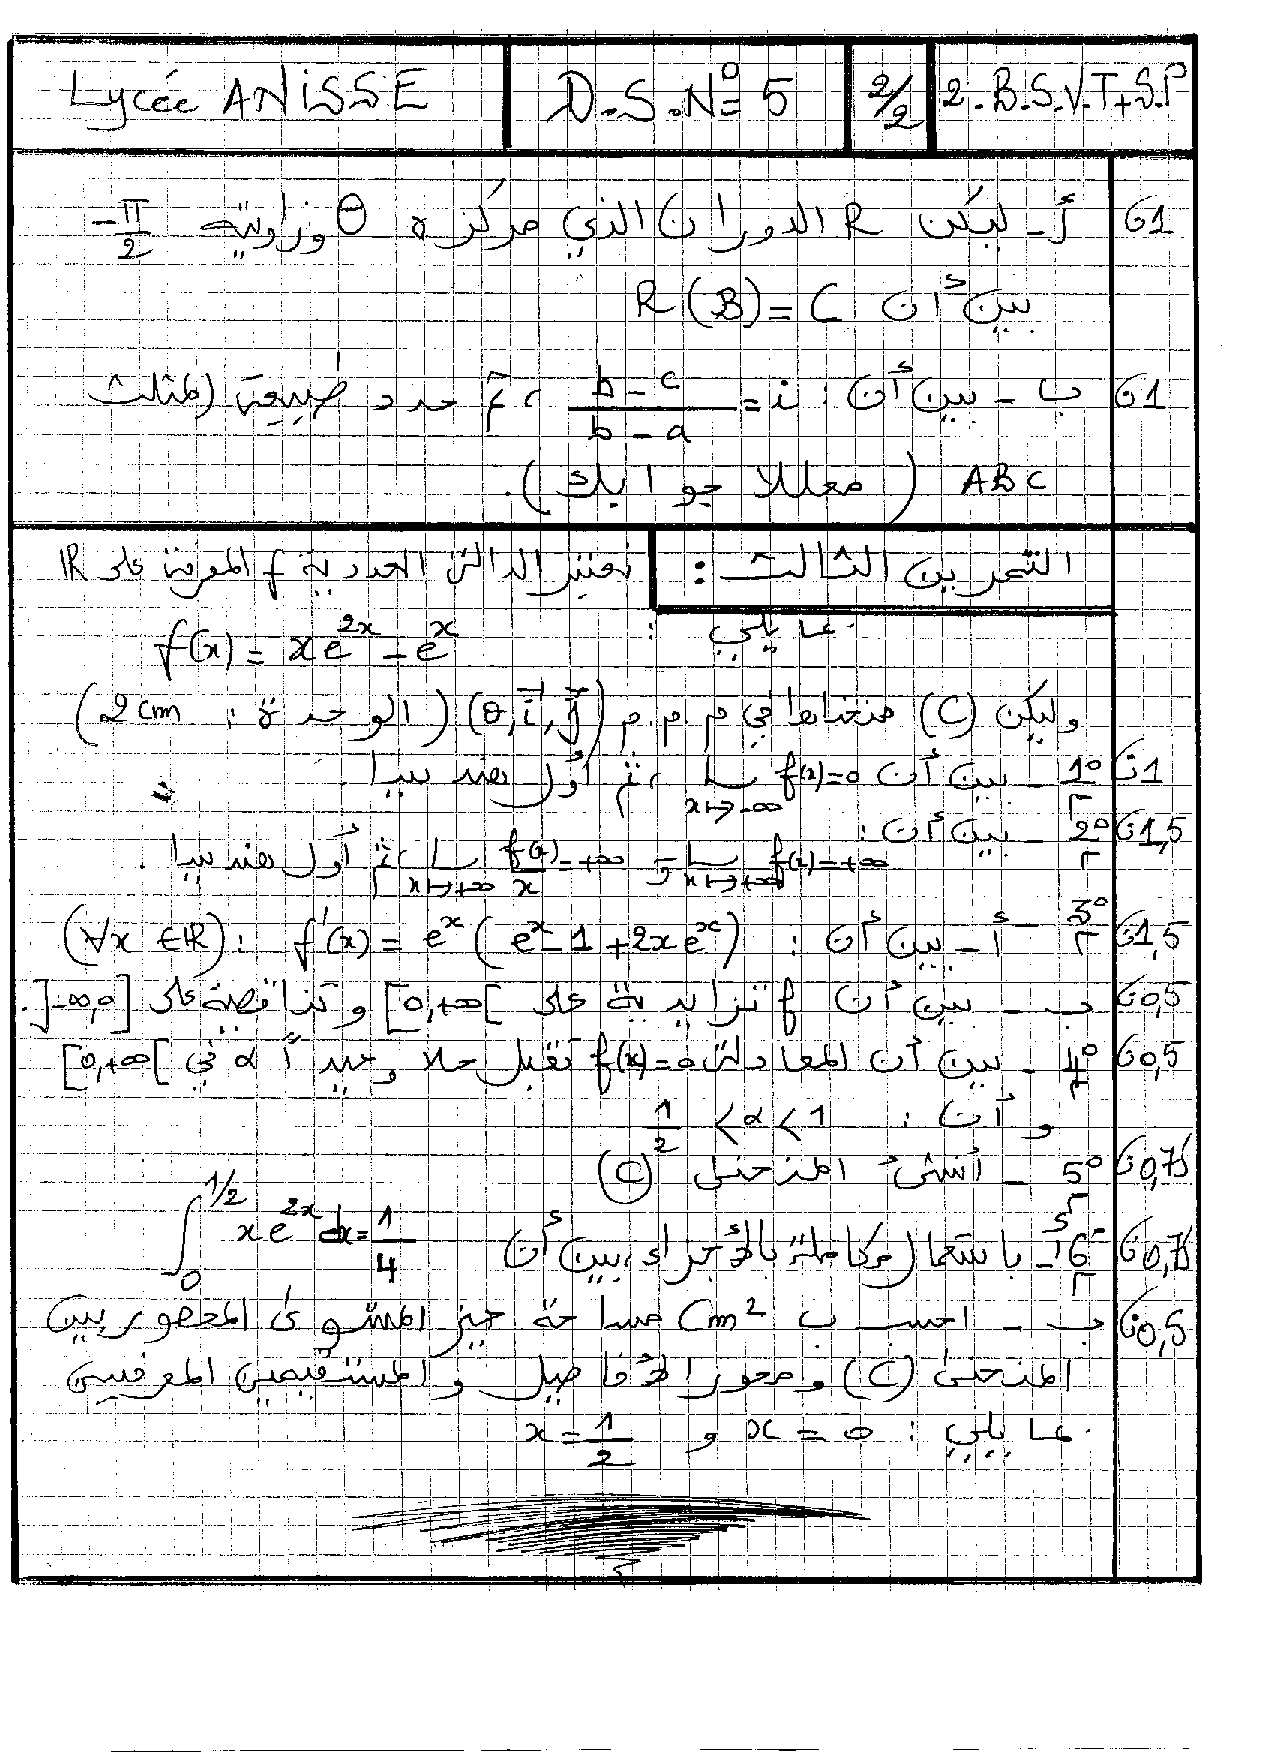 Lycée ANISSE
D.S.N° 5
2/2
2.B.S.V.T+S.P
أ - ليكن R الدوران الذي مركزه θ وزاويته -π/2
ن1
بين أن R(B) = C
ب - بين أن : (b - c)/(b - a) = i ، ثم حدد طبيعة المثلث
ن1
ABC (معللا جوابك).
التمرين الثالث : نعتبر الدالة العددية f المعرفة على ℝ
بما يلي : f(x) = xe^{2x} - e^x
وليكن (C) منحناها في م.م.م (θ, i⃗, j⃗) (الوحدة : 2cm)
1° - بين أن lim_{x→-∞} f(x) = 0 ، ثم أول هندسيا.
ن1
2° - بين أن :
ن1,5
lim_{x→+∞} f(x) = +∞ و lim_{x→+∞} f(x)/x = +∞ ، ثم أول هندسيا.
3° - أ - بين أن : f'(x) = e^x(e^x - 1 + 2xe^x) : (∀x ∈ ℝ)
ن1,5
ب - بين أن f تزايدية على [0,+∞[ وتناقصية على ]-∞,0].
ن0,5
4° - بين أن المعادلة f(x) = 0 تقبل حلا وحيدا α في [0,+∞[
ن0,5
وأن : 1/2 < α < 1
5° - أنشئ المنحنى (C)
ن0,75
6° - أ - باستعمال مكاملة بالأجزاء، بين أن ∫_0^{1/2} xe^{2x} dx = 1/4
ن0,75
ب - احسب ب cm² مساحة حيز المستوى المحصور بين
ن0,5
المنحنى (C) ومحور الأفاصيل والمستقيمين المعرفين
بما يلي : x = 0 و x = 1/2